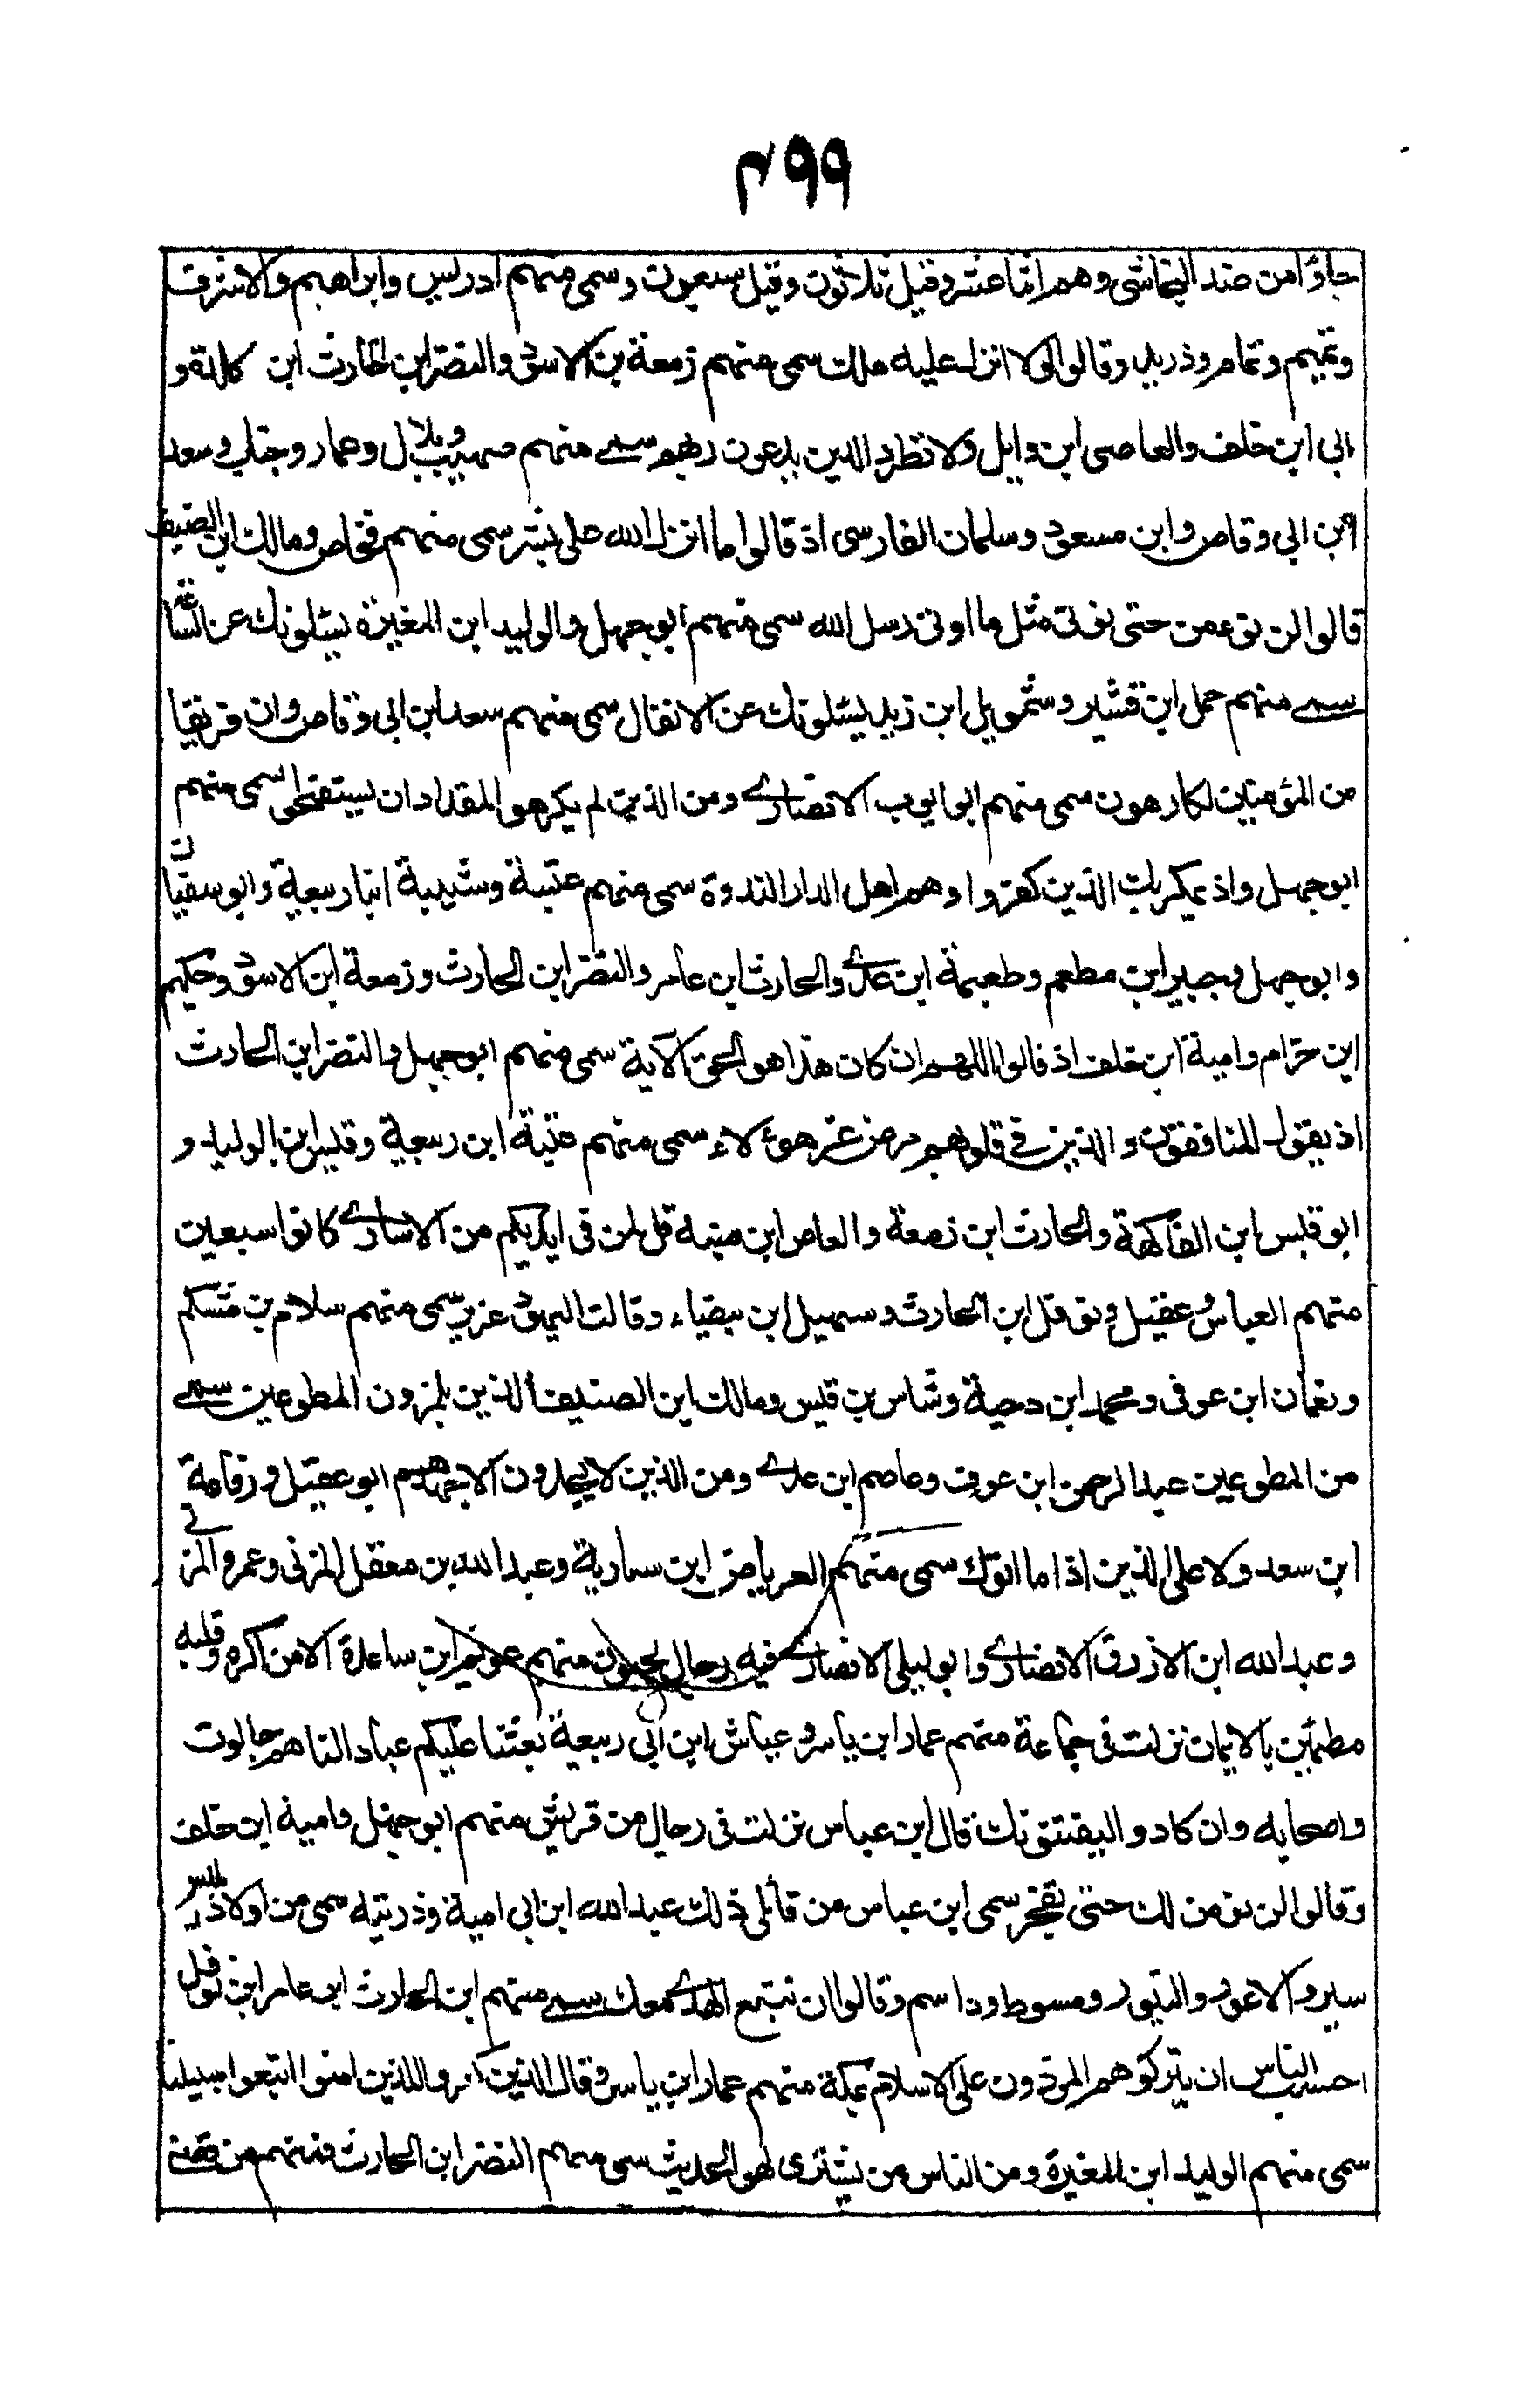 ٤٩٩
جاؤا من عند النجاشي وهم اثنا عشر وقيل ثلاثون وقيل سبعون وسمى منهم ادريس وابراهيم والاشرف
وتميم وتمام ودريد وقالوا لولا انزل عليه ملك سمى منهم زمعة بن الاسود والنضر ابن الحارث ابن كلدة و
ابي ابن خلف والعاصى ابن وايل ولا تطرد الذين يدعون ربهم سمى منهم صهيب وبلال وعمار وخباب وسعد
ابن ابي وقاص وابن مسعود وسلمان الفارسى اذ قالوا ما انزل الله على بشر سمى منهم فنحاص ومالك ابن الضيف
قالوا لن نؤمن حتى نؤتى مثل ما اوتى رسل الله سمى منهم ابو جهل والوليد ابن المغيرة يسئلونك عن الساعة
سمى منهم حمل ابن قشير وشمويل ابن زيد يسئلونك عن الانفال سمى منهم سعد ابن ابى وقاص وان فريقا
من المؤمنين لكارهون سمى منهم ابو ايوب الانصارى ومن الذين لم يكرهوا المقداد ان تستفتحوا سمى منهم
ابو جهل واذ يمكر بك الذين كفروا وهم اهل الدار الندوة سمى منهم عتبة وشيبة ابنا ربيعة وابو سفيان
وابو جهل وجبير ابن مطعم وطعيمة ابن عدى والحارث ابن عامر والنضر ابن الحارث وزمعة ابن الاسود وحكيم
ابن حزام وامية ابن خلف اذ قالوا اللهم ان كان هذا هو الحق الآية سمى منهم ابو جهل والنضر ابن الحارث
اذ يقول المنافقون والذين في قلوبهم مرض غر هؤلاء سمى منهم عتبة ابن ربيعة وقيس ابن الوليد و
ابو قيس ابن الفاكهة والحارث ابن زمعة والعاص ابن منبه قل لمن في ايديكم من الاسارى كانوا سبعين
منهم العباس وعقيل ونوفل ابن الحارث وسهيل ابن بيضاء وقالت اليهود عزير سمى منهم سلام بن مشكم
ونعمان ابن عوفى ومحمد ابن دحية وشاس بن قيس ومالك ابن الصنيف الذين يلمزون المطوعين سمى
من المطوعين عبد الرحمن ابن عوف وعاصم ابن عدى ومن الذين لا يجدون الا جهدهم ابو عقيل ورفاعة
ابن سعد ولا على الذين اذا ما اتوك سمى منهم العرباض ابن سارية وعبد الله بن معقل المزنى وعمرو المزنى
وعبد الله ابن الازرق الانصارى وابو ليلى الانصارى فيه رجال يحبون منهم عويم ابن ساعدة الا من اكره وقلبه
مطمئن بالايمان نزلت فى جماعة منهم عمار ابن ياسر وعياش ابن ابى ربيعة بعثنا عليكم عبادا لنا هم جالوت
واصحابه وان كادوا ليفتنونك قال ابن عباس نزلت فى رجال من قريش منهم ابو جهل وامية ابن خلف
وقالوا لن نؤمن لك حتى تفجر سمى ابن عباس من قائلى ذلك عبد الله ابن ابى امية وذريته سمى من اولاد
والاعور ومسوط وداسم وقالوا ان نتبع الهدى معك سمى منهم ابن الحارث ابن عامر ابن نوفل
احسب الناس ان يتركوا هم المؤذون على الاسلام بمكة منهم عمار ابن ياسر وقال الذين كفروا للذين امنوا اتبعوا سبيلنا
سمى منهم الوليد ابن المغيرة ومن الناس من يشترى لهو الحديث سمى منهم النضر ابن الحارث فمنهم من قضى